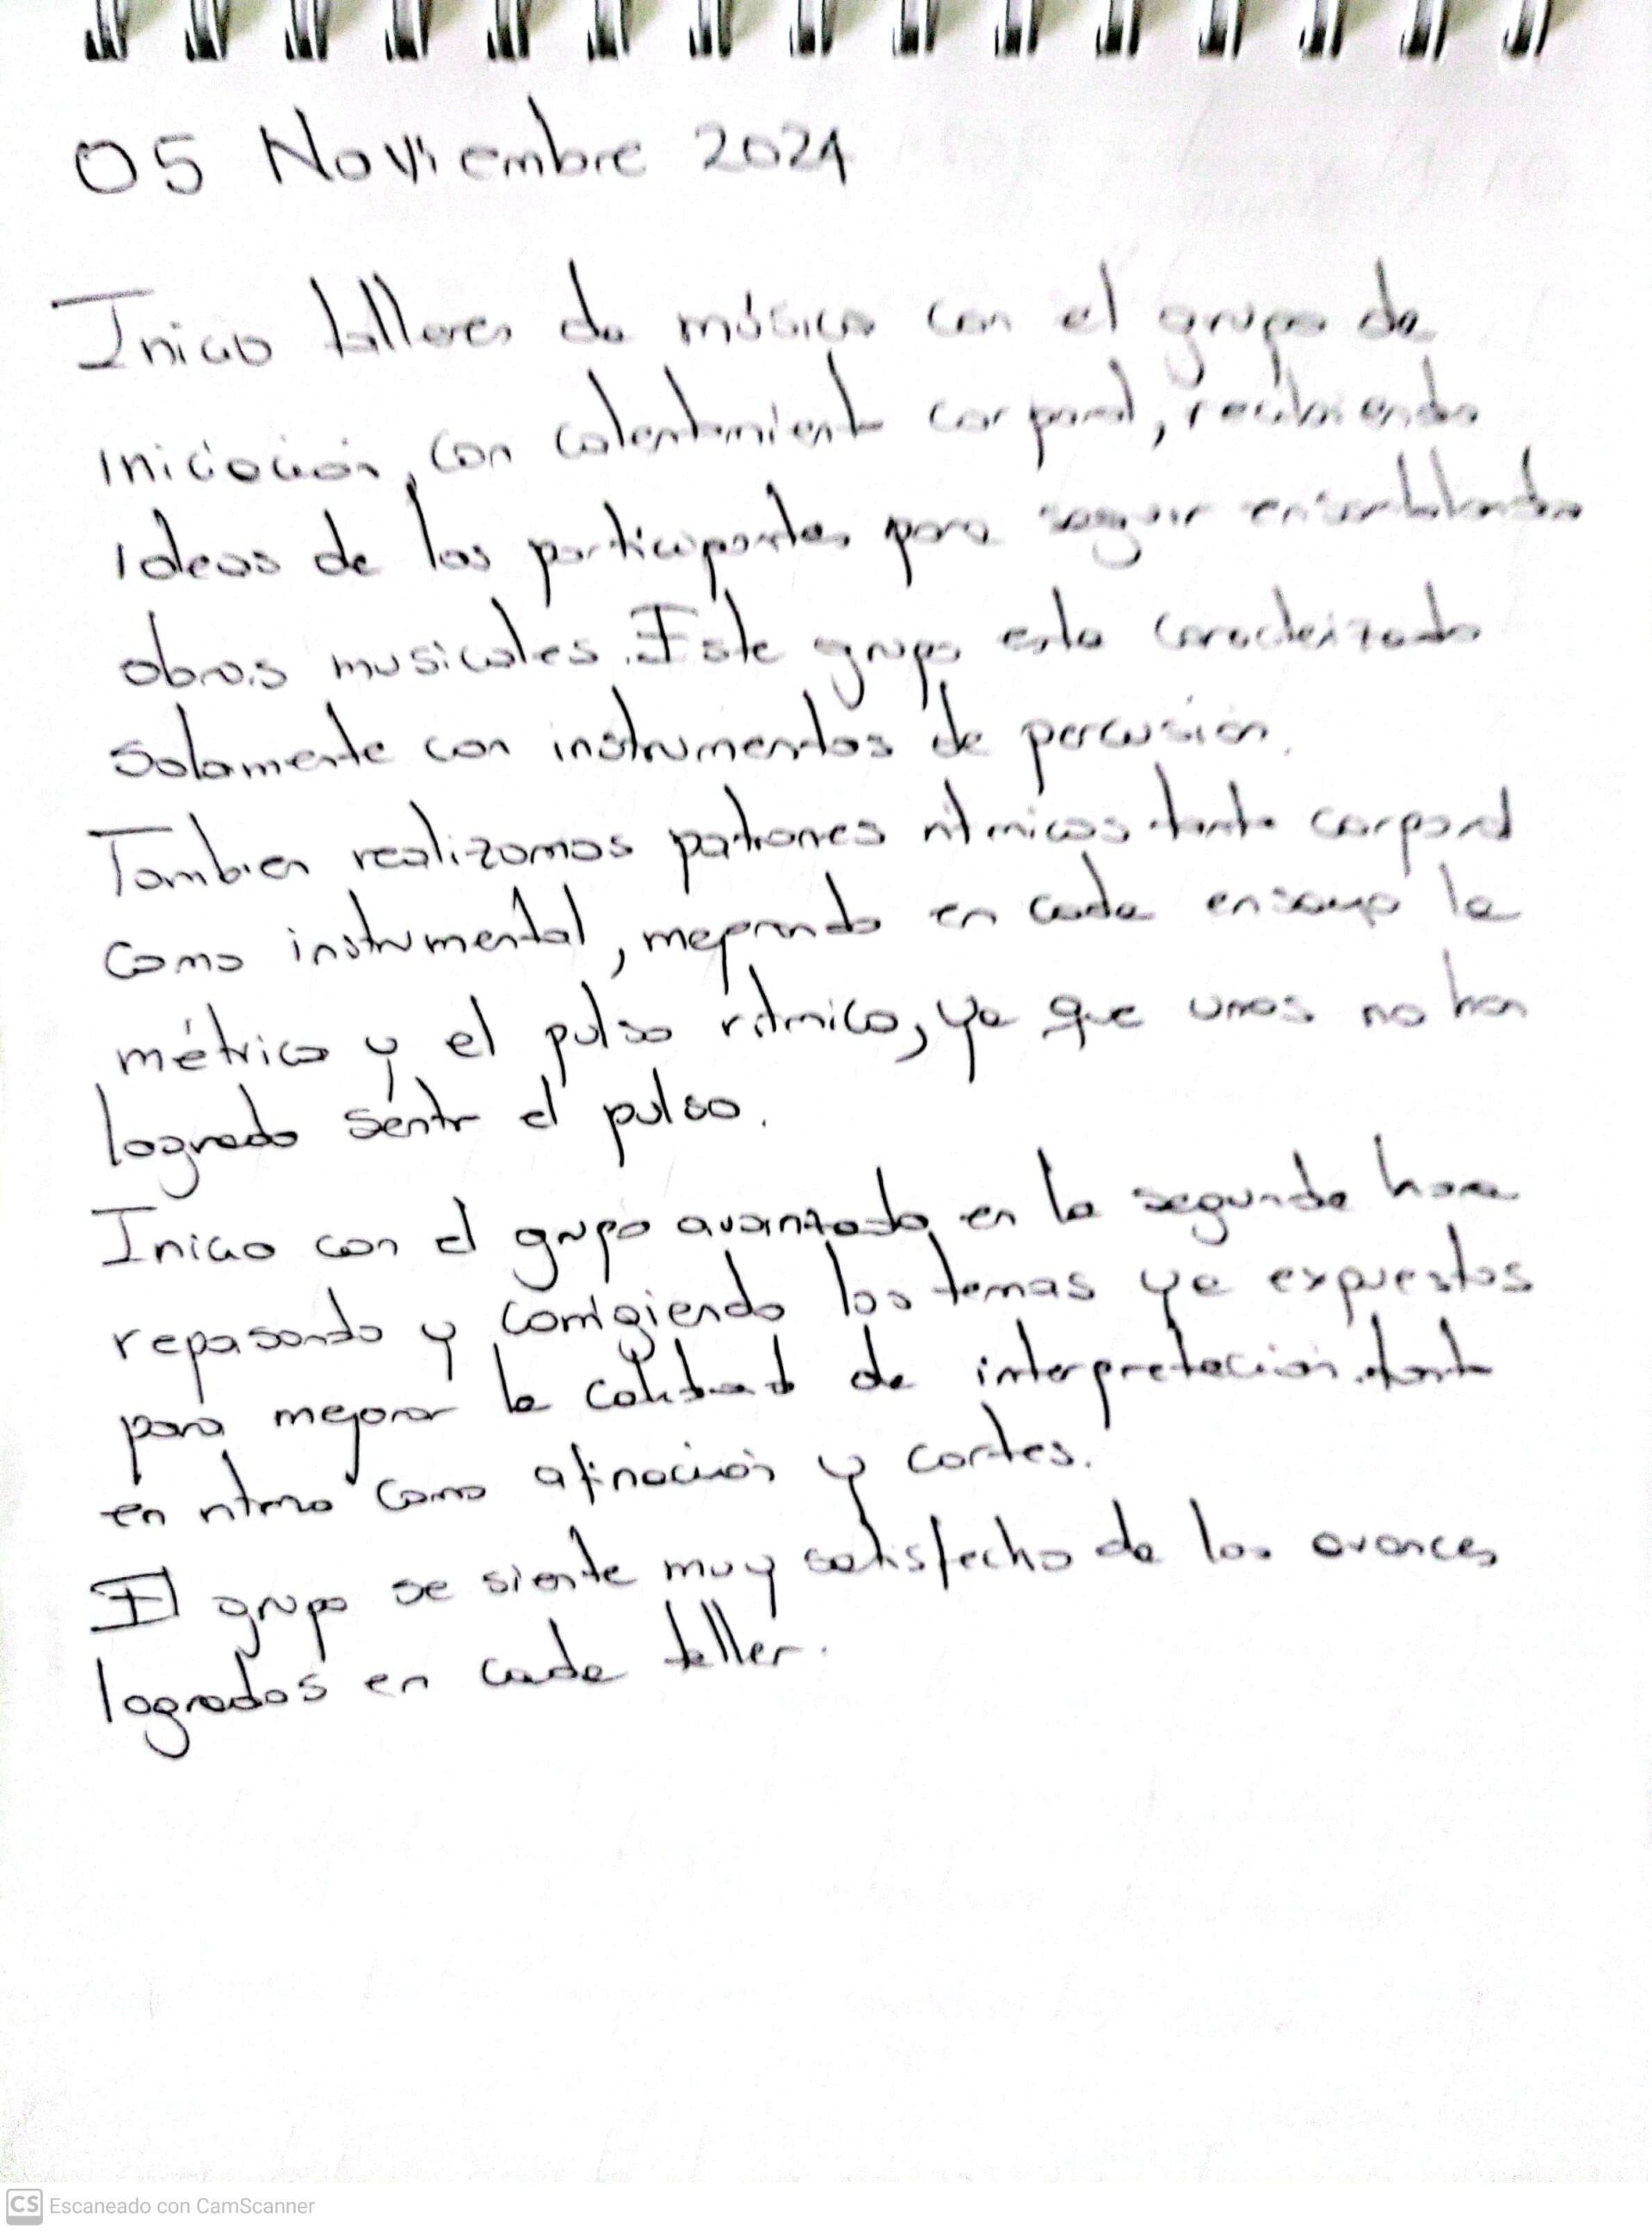 05 Noviembre 2024
Inicio talleres de música con el grupo de
iniciación, con calentamiento corporal, recibiendo
ideas de los participantes para seguir ensamblando
obras musicales. Este grupo esta caracterizado
solamente con instrumentos de percusión.
Tambien realizamos patrones ritmicos tanto corporal
como instrumental, mejorando en cada ensayo la
métrica y el pulso ritmico, ya que unos no han
logrado sentir el pulso.
Inicio con el grupo avanzado en la segunda hora
repasando y corrigiendo los temas ya expuestos
para mejorar la calidad de interpretación tanto
en ritmo como afinación y cortes.
El grupo se siente muy satisfecho de los avances
logrados en cada taller.
CS Escaneado con CamScanner